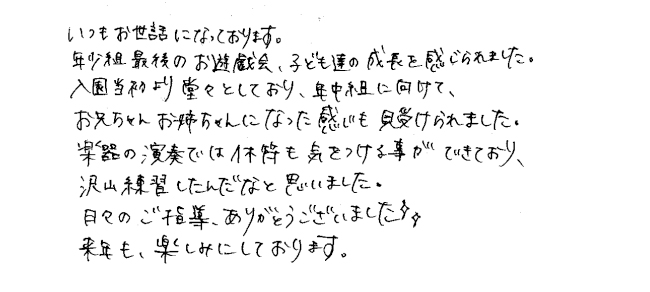 いつもお世話になっております。
年少組最後のお遊戯会、子ども達の成長を感じられました。
入園当初より堂々としており、年中組に向けて、
お兄ちゃんお姉ちゃんになった感じも見受けられました。
楽器の演奏では休符も気をつける事ができており、
沢山練習したんだなと思いました。
日々のご指導、ありがとうございました✧✧
来年も、楽しみにしております。